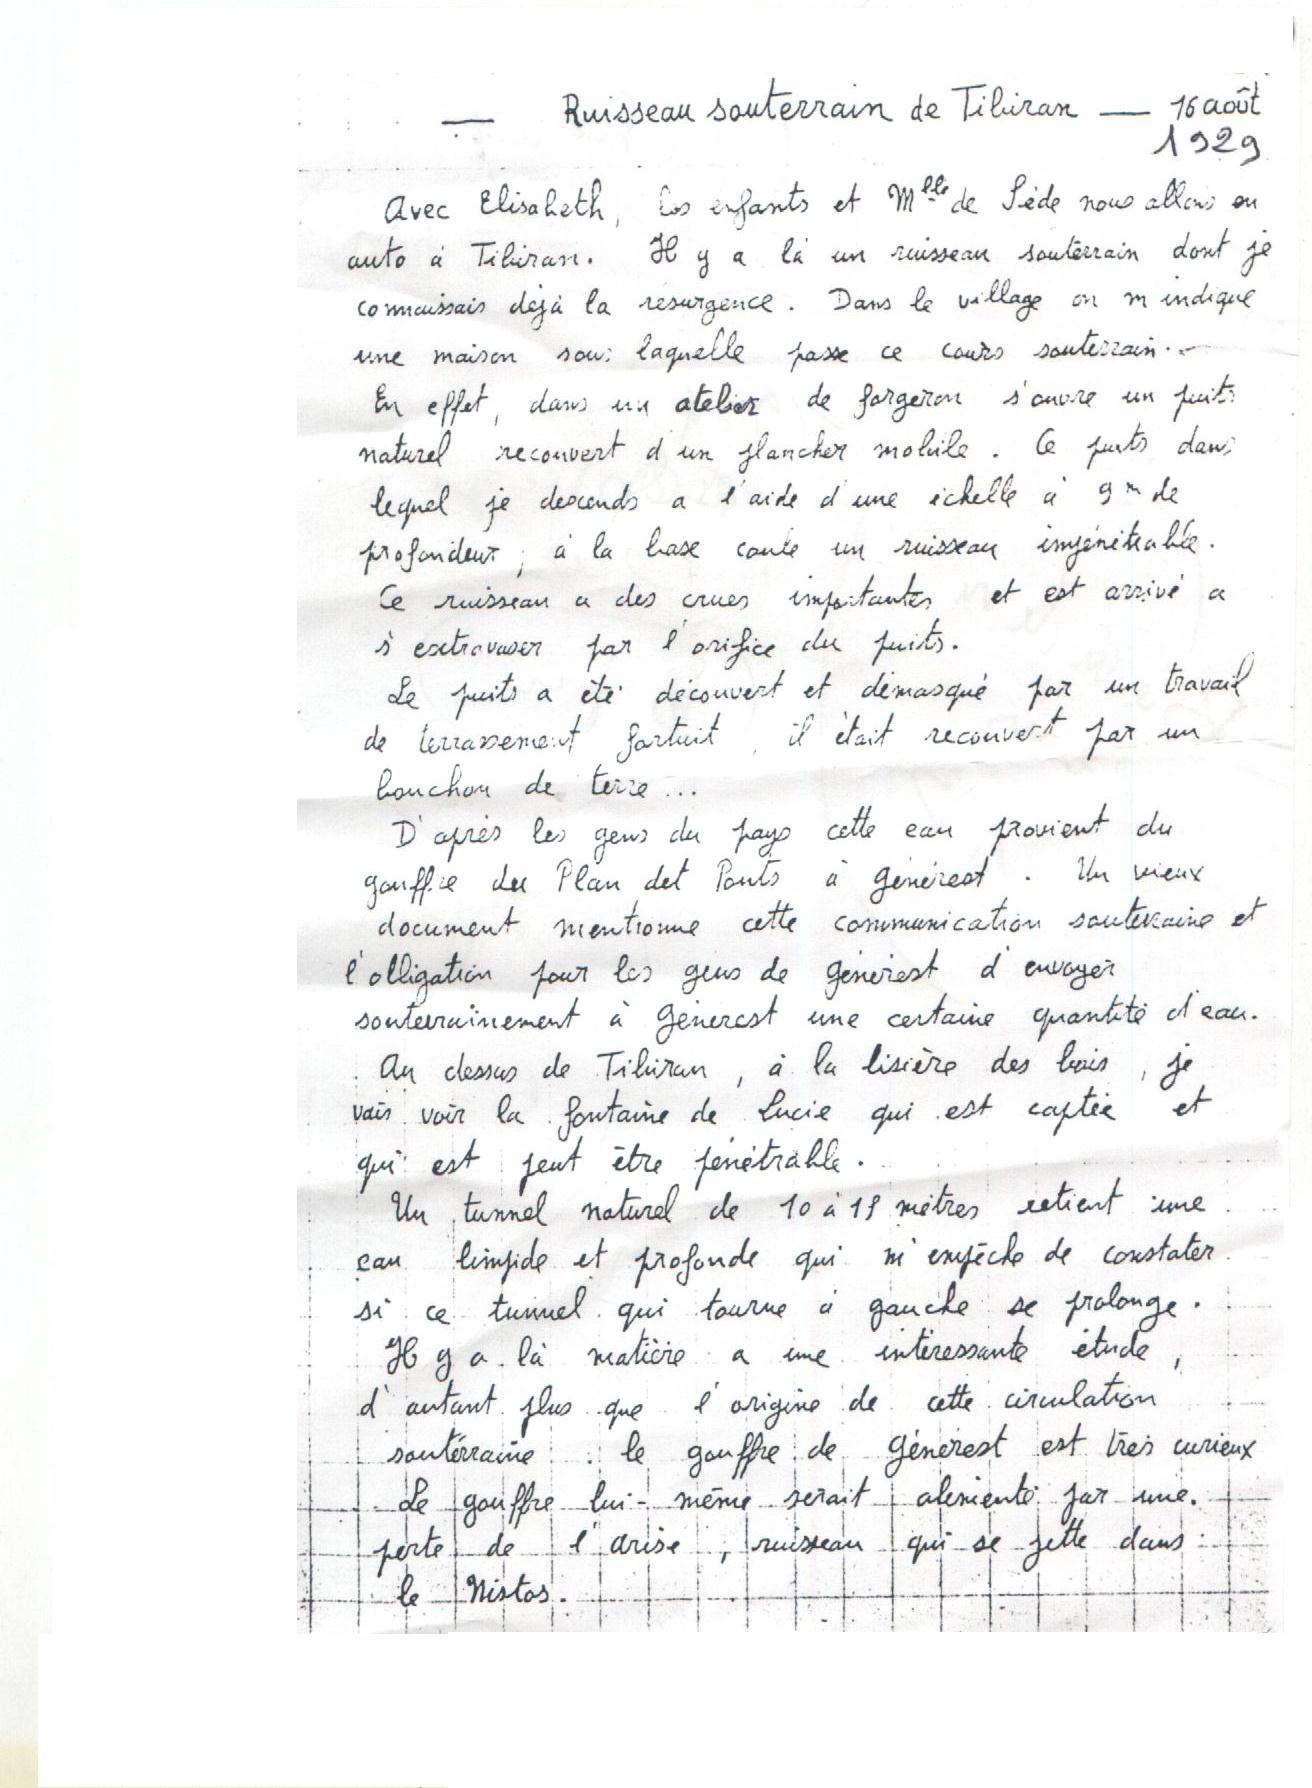 — Ruisseau souterrain de Tibiran — 16 août
1929
Avec Elisabeth, les enfants et Mlle de Sède nous allons en
auto à Tibiran. Il y a là un ruisseau souterrain dont je
connaissais déjà la résurgence. Dans le village on m'indique
une maison sous laquelle passe ce cours souterrain.-
En effet, dans un atelier de forgeron s'ouvre un puits
naturel recouvert d'un plancher mobile. Ce puits dans
lequel je descends a l'aide d'une échelle à 9 m de
profondeur ; à la base coule un ruisseau impénétrable.
Ce ruisseau a des crues importantes et est arrivé a
s'extravaser par l'orifice du puits.
Le puits a été découvert et démasqué par un travail
de terrassement fortuit, il était recouvert par un
bouchon de terre ...
D'après les gens du pays cette eau provient du
gouffre du Plan det Pouts à Générest. Un vieux
document mentionne cette communication souterraine et
l'olligation pour les gens de Générest d'envoyer
souterrainement à Générest une certaine quantité d'eau.
Au dessus de Tibiran, à la lisière des bois, je
vais voir la fontaine de Lucie qui est captée et
qui est peut être pénétrable.
Un tunnel naturel de 10 à 15 mètres retient une
eau limpide et profonde qui m'empêche de constater
si ce tunnel qui tourne à gauche se prolonge.
Il y a là matière a une intéressante étude,
d'autant plus que l'origine de cette circulation
souterraine : le gouffre de Générest est très curieux
Le gouffre lui-même serait alimenté par une
perte de l'arise, ruisseau qui se jette dans
le Nistos.